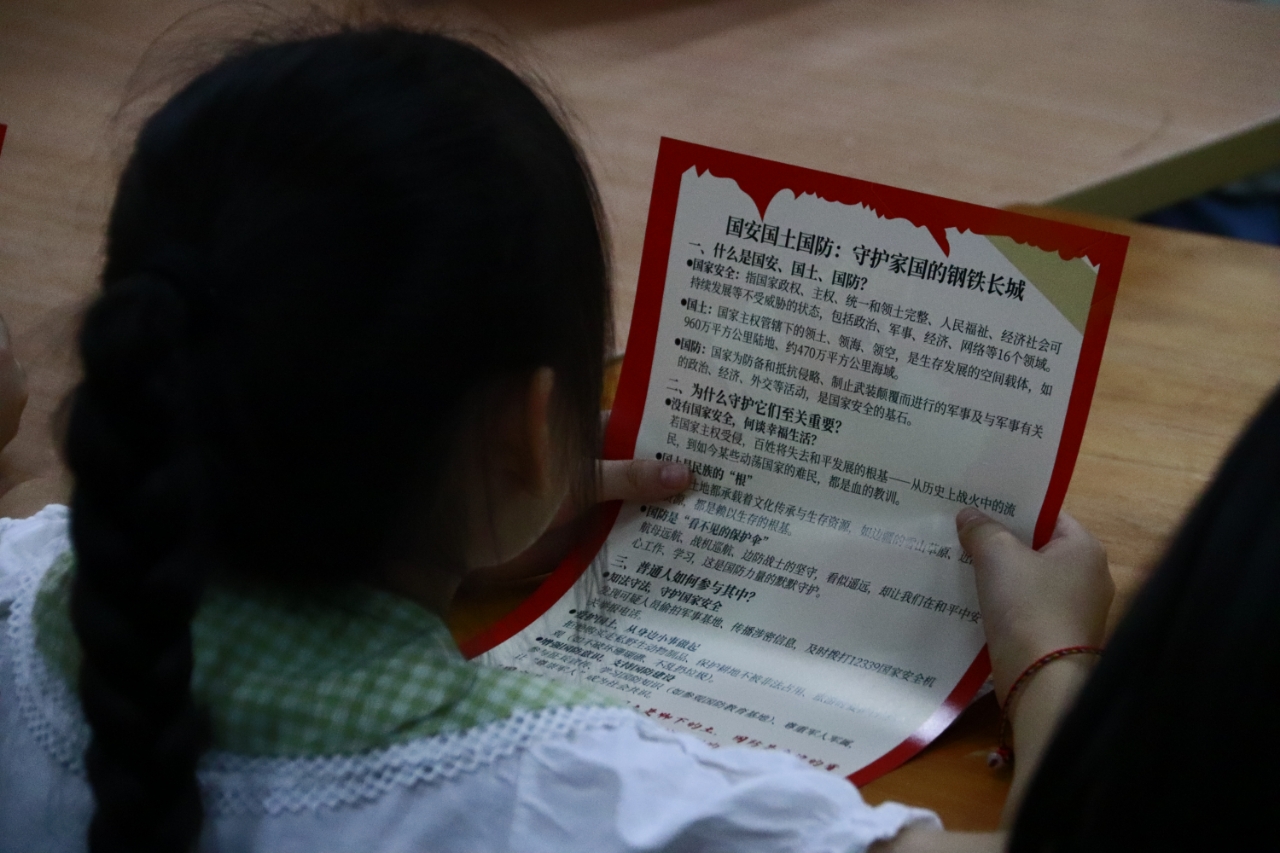 国安国土国防：守护家国的钢铁长城
一、什么是国安、国土、国防？
●国家安全：指国家政权、主权、统一和领土完整、人民福祉、经济社会可
持续发展等不受威胁的状态，包括政治、军事、经济、网络等16个领域。
●国土：国家主权管辖下的领土、领海、领空，是生存发展的空间载体，如
960万平方公里陆地、约470万平方公里海域。
●国防：国家为防备和抵抗侵略、制止武装颠覆而进行的军事及与军事有关
的政治、经济、外交等活动，是国家安全的基石。
二、为什么守护它们至关重要？
●没有国家安全，何谈幸福生活？
若国家主权受侵，百姓将失去和平发展的根基——从历史上战火中的流
民，到如今某些动荡国家的难民，都是血的教训。
●国土是民族的“根”
土地都承载着文化传承与生存资源，如边疆的雪山草原、
都是赖以生存的根基。
●国防是“看不见的保护伞”
航母远航、战机巡航、边防战士的坚守，看似遥远，却让我们在和平中安
心工作、学习，这是国防力量的默默守护。
三、普通人如何参与其中？
●知法守法，守护国家安全
发现可疑人员偷拍军事基地、传播涉密信息，及时拨打12339国家安全机
关举报电话。
●爱护国土，从身边小事做起
野生动物制品，保护耕地不被非法占用，
●增强国防意识，支持国防建设
学习国防知识（如参观国防教育基地），尊重军人军属，
成为社会共识。
脚下的土，国防是